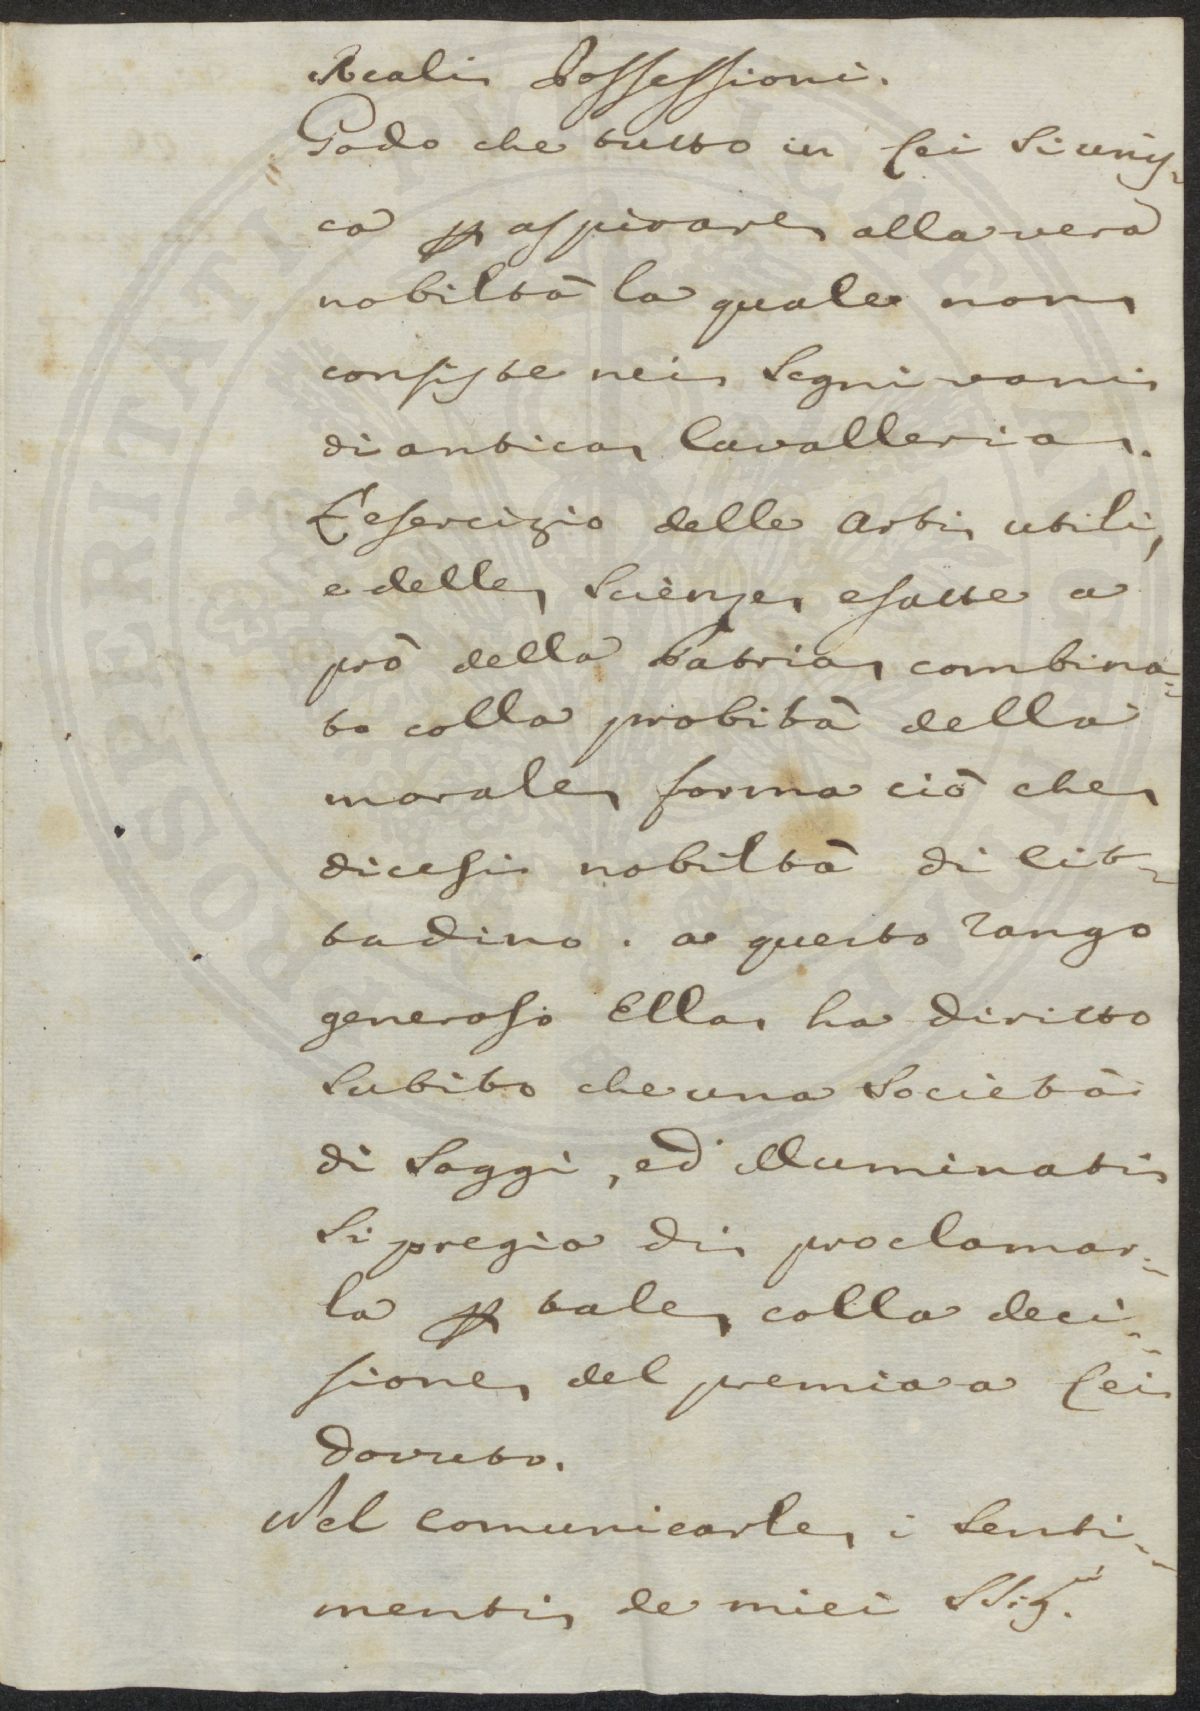 Reali Possessioni.
Godo che tutto in Lei si unis-
ca p aspirare alla vera
nobiltà la quale non
consiste nei segni vani
di antica Cavalleria.
L'esercizio delle Arti utili,
e delle Scienze esatte a
prò della Patria combina-
to colla probità della
morale forma ciò che
dicesi nobiltà di Cit-
tadino. a questo rango
generoso Ella ha diritto
subito che una Società
di Saggi, ed illuminati
si pregia di proclamar-
la p tale colla deci-
sione del premio a Lei
dovuto.
Nel comunicarle i senti-
menti de miei SSig.ri
PROSPERITATI PVBLICAE